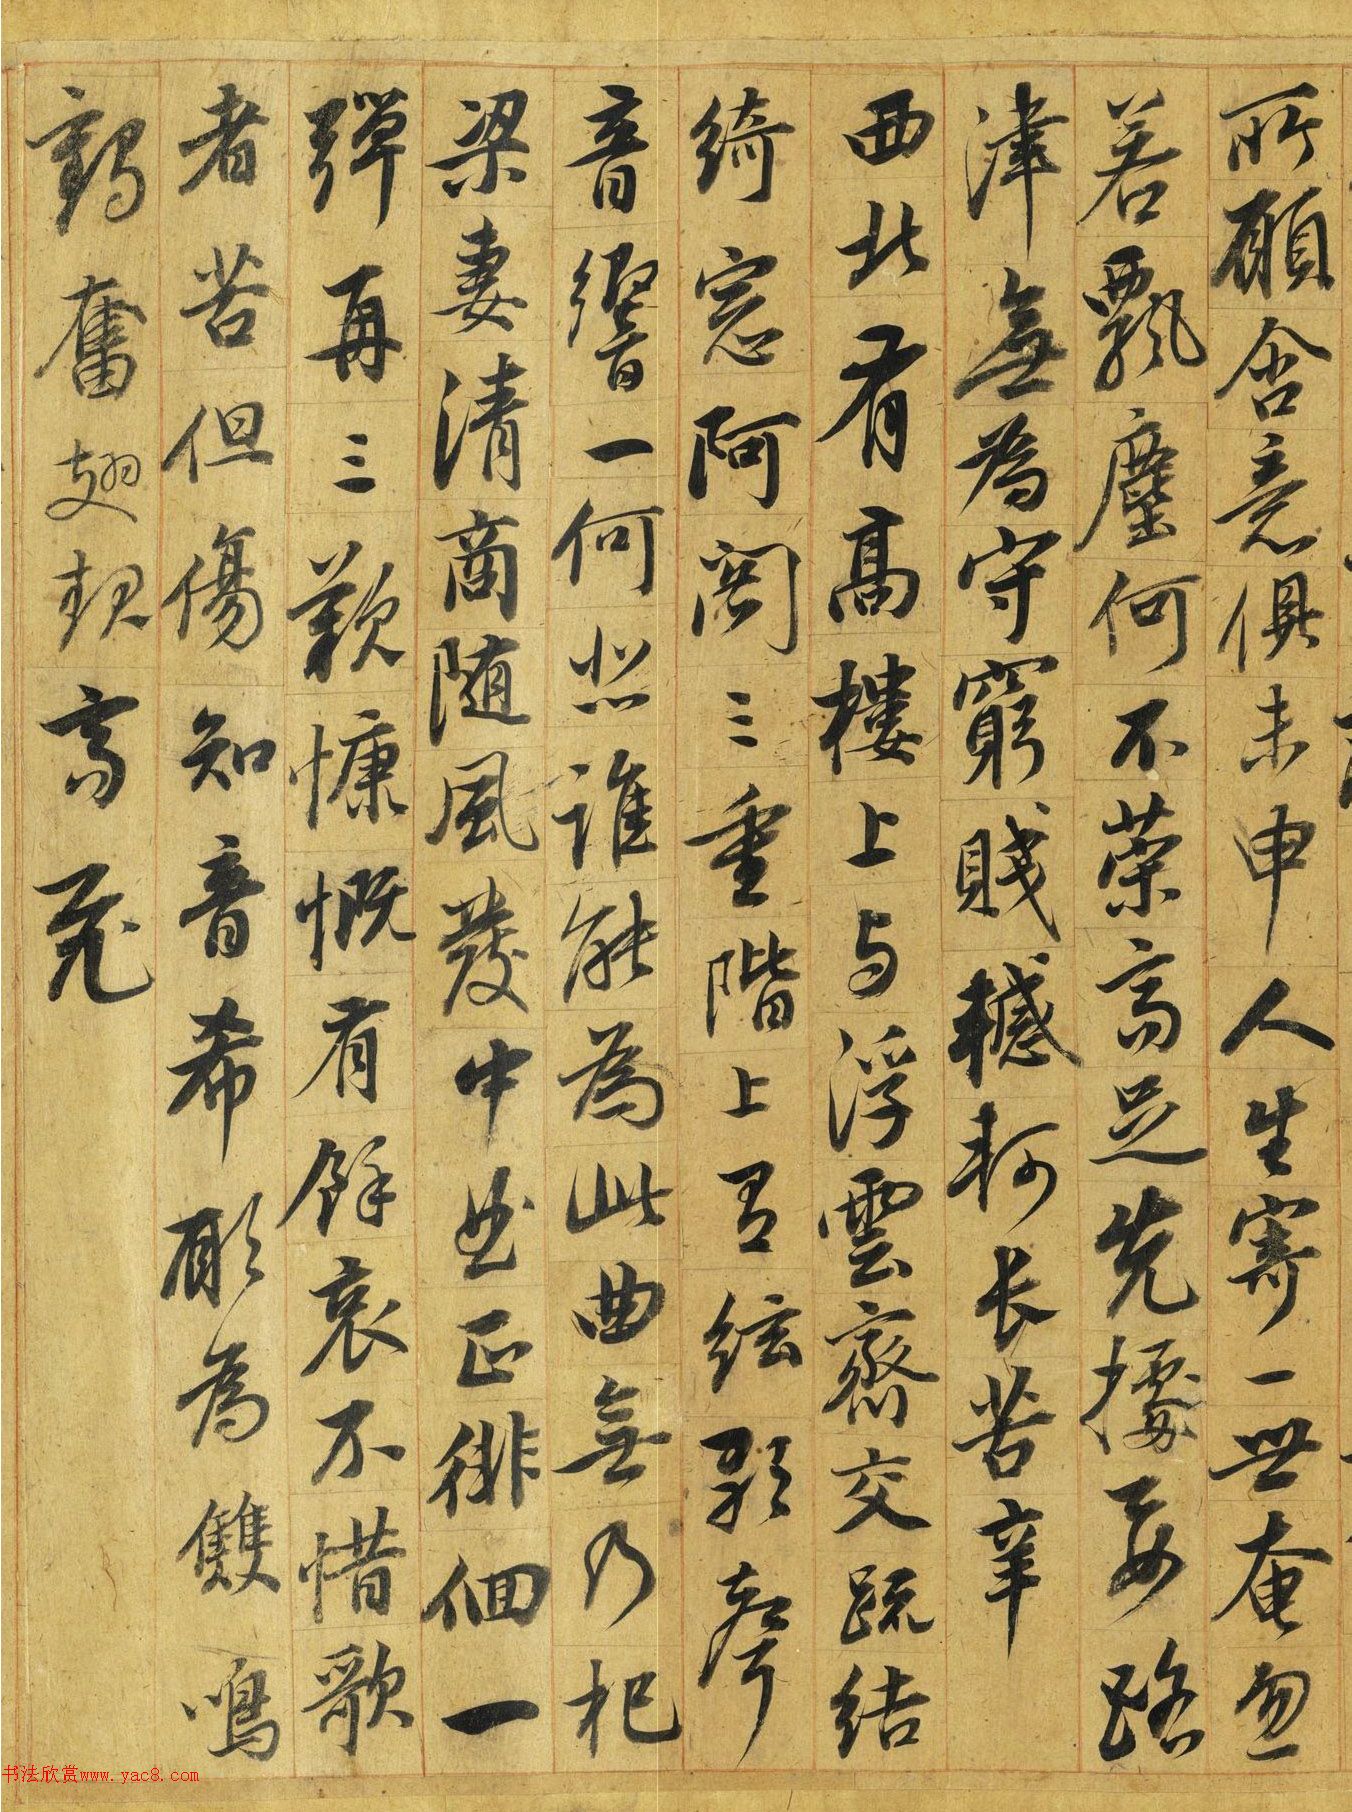 所願含意俱未申人生寄一世奄忽
若飄塵何不榮高足先據要路
津無為守窮賤轗軻长苦辛
西北有高樓上与浮雲齊交疏结
綺窓阿閣三重階上有絃歌聲
音響一何悲誰能為此曲無乃杞
梁妻清商随風發中曲正徘徊一
彈再三歎慷慨有餘哀不惜歌
者苦但傷知音希願為雙鳴
鶴奮翅起高飛
书法欣赏www.yac8.com